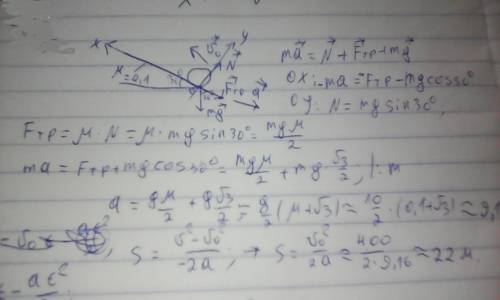 X
Y
μ=0,1
30°
v⃗₀
N⃗
F⃗тр
a⃗
mg⃗
ma⃗ = N⃗ + F⃗тр + mg⃗
OX: -ma = -Fтр - mg cos30°
OY: N = mg sin30°,
Fтр = μ·N = μ·mg sin30° = mgμ/2
ma = Fтр + mg cos30° = mgμ/2 + mg·√3/2; |: m
a = gμ/2 + g√3/2 = g/2 (μ+√3) ≈ 10/2 · (0,1+√3) ≈ 9,1
S = (v² - v₀²)/(-2a); → S = v₀²/2a ≈ 400/(2·9,16) ≈ 22м.